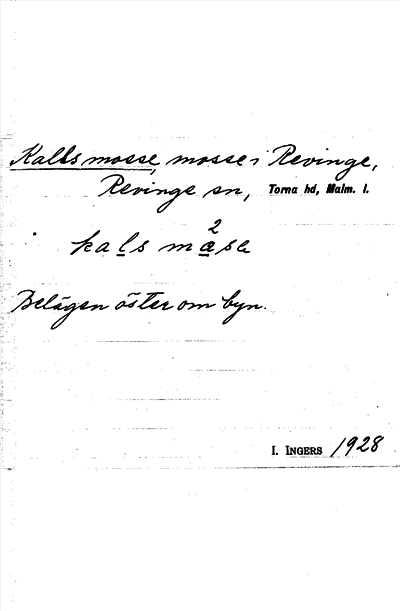 Kalls mosse, mosse i Revinge,
Revinge sn, Torna hd, Malm. l.
kals måsa
2
Belägen öster om byn.
I. INGERS 1928